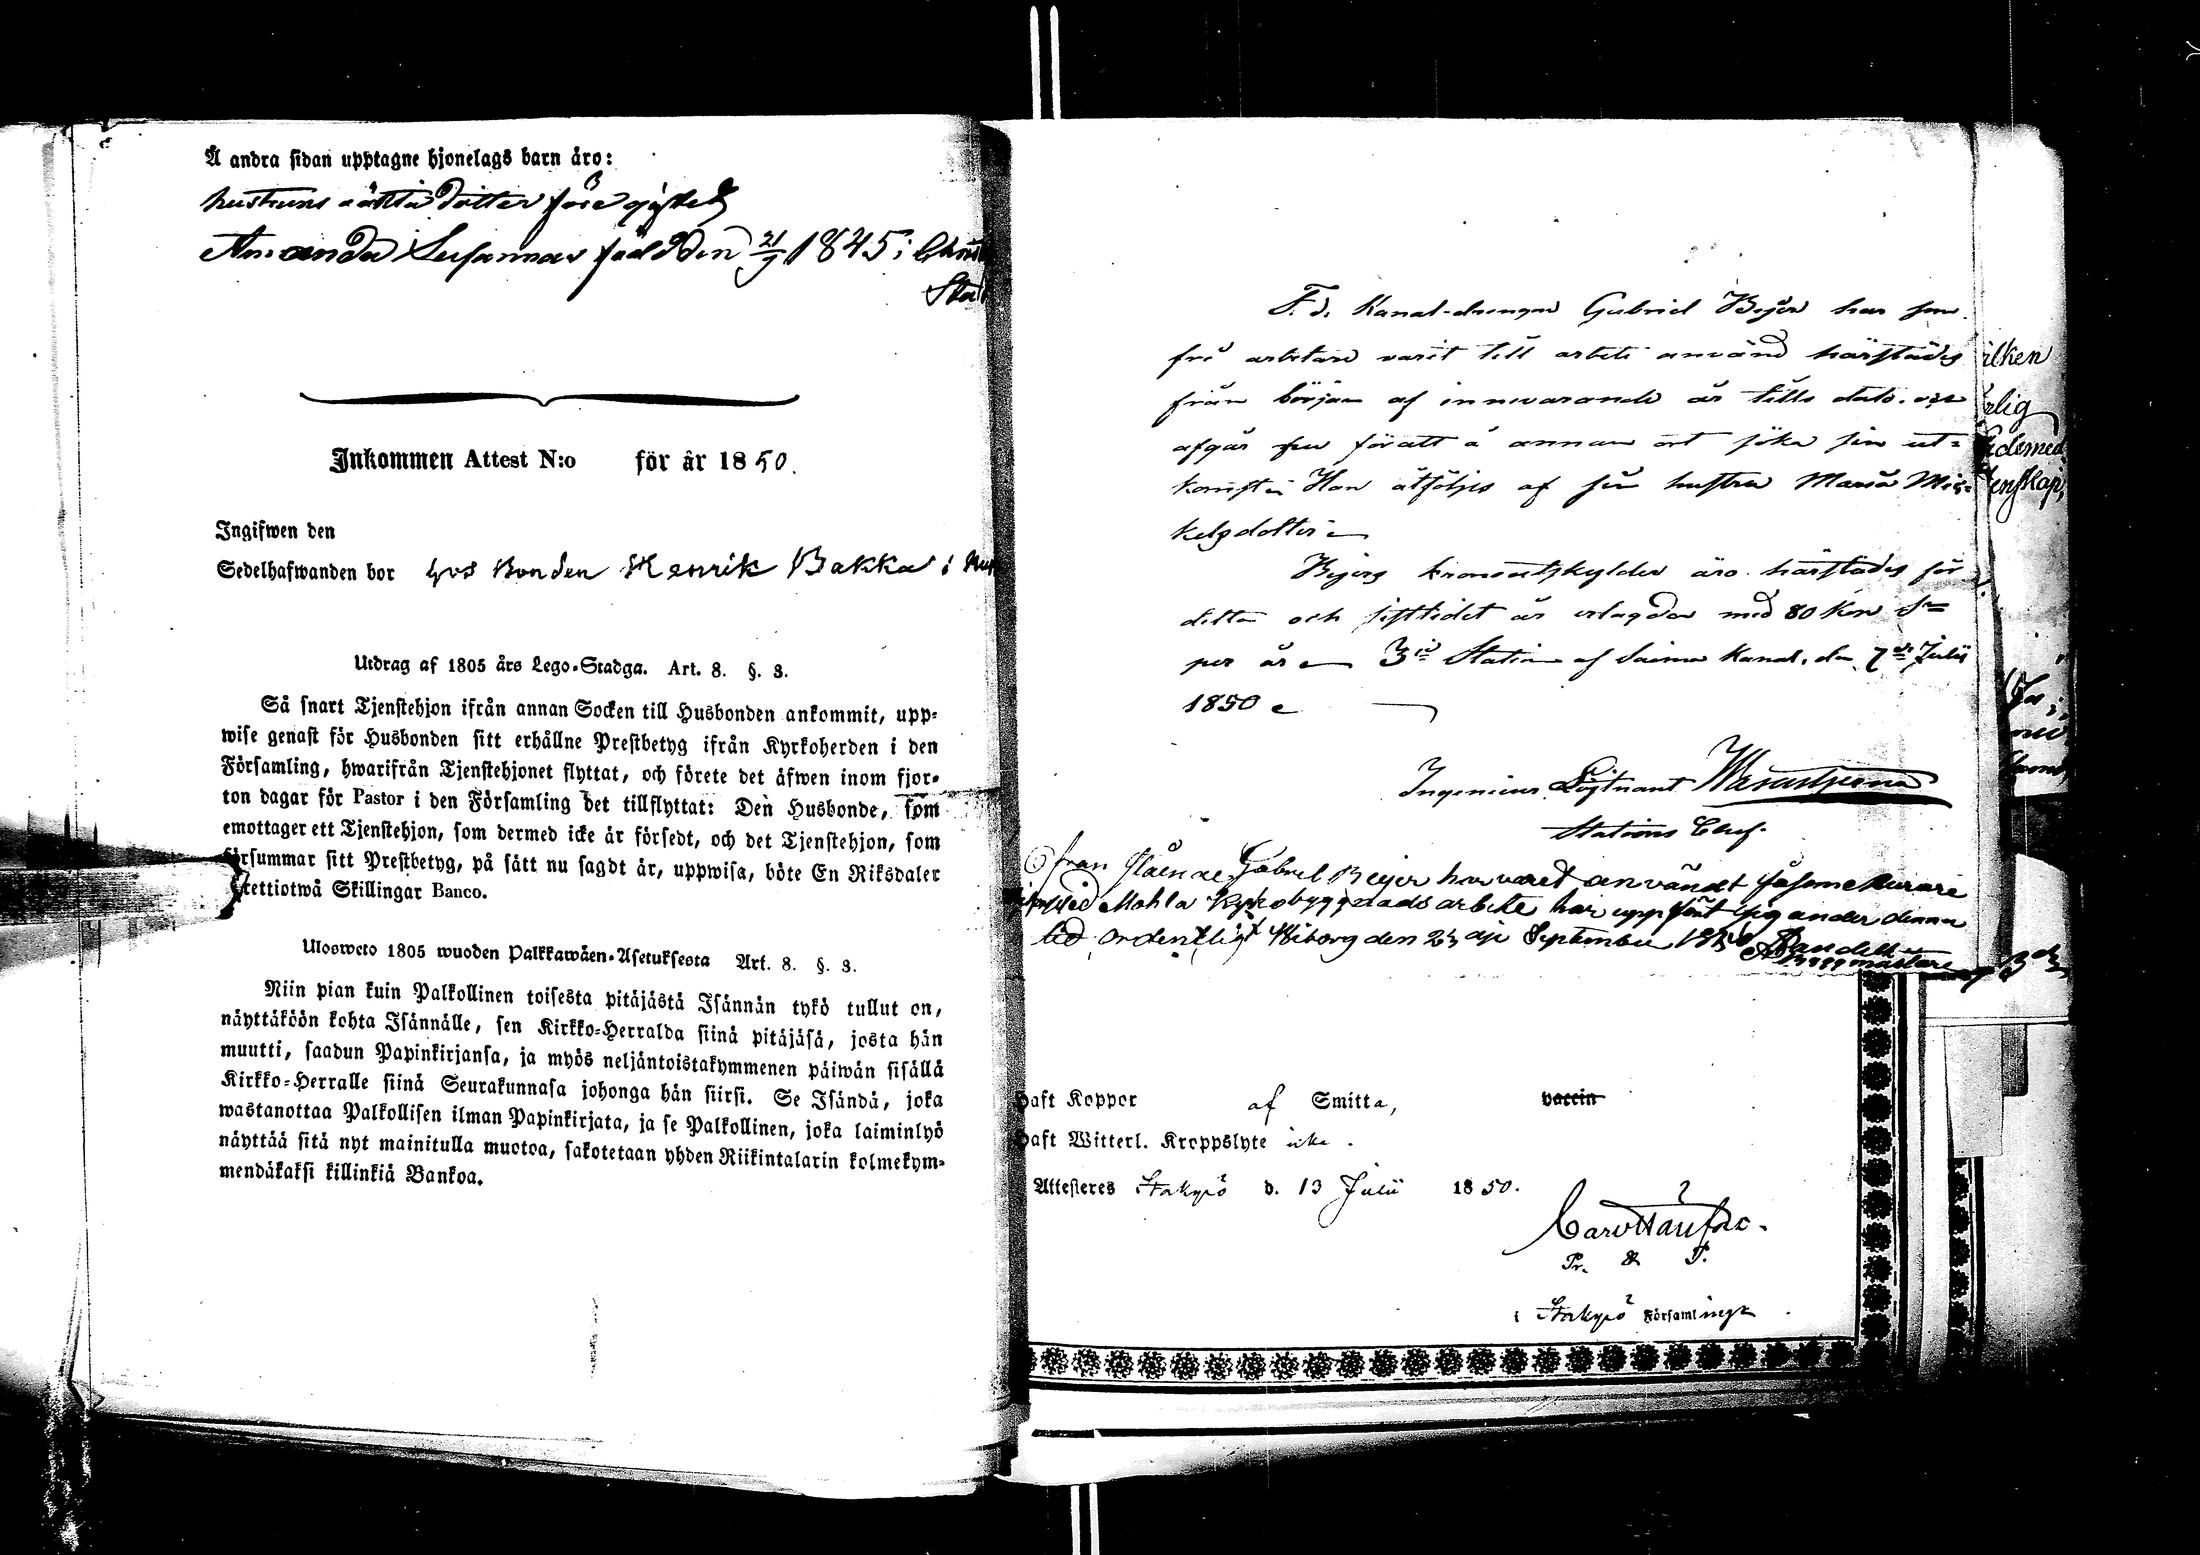 Å andra sidan upptagne hjonelags barn äro:
hustruns oäkta dotter före giftet
Amanda Susanna född den 21/9 1845 i
Inkommen Attest N:o för år 1850.
Ingifwen den
Sedelhafwanden bor hos Bonden Henrik Bakka i
Utdrag af 1805 års Lego-Stadga. Art. 8. §. 3.
Så snart Tjenstehjon ifrån annan Socken till Husbonden ankommit, upp-
wise genast för Husbonden sitt erhållne Prestbetyg ifrån Kyrkoherden i den
Församling, hwarifrån Tjenstehjonet flyttat, och förete det äfwen inom fjor-
ton dagar för Pastor i den Församling det tillflyttat: Den Husbonde, som
emottager ett Tjenstehjon, som dermed icke är försedt, och det Tjenstehjon, som
försummar sitt Prestbetyg, på sätt nu sagdt är, uppwisa, böte En Riksdaler
trettiotwå Skillingar Banco.
Ulosweto 1805 wuoden Palkkawäen-Asetuksesta Art. 8. §. 3.
Niin pian kuin Palkollinen toisesta pitäjästä Isännän tykö tullut on,
näyttäköön kohta Isännälle, sen Kirkko-Herralda siinä pitäjäsä, josta hän
muutti, saadun Papinkirjansa, ja myös neljäntoistakymmenen päiwän sisällä
Kirkko-Herralle siinä Seurakunnasa johonga hän siirsi. Se Isändä, joka
wastanottaa Palkollisen ilman Papinkirjata, ja se Palkollinen, joka laiminlyö
näyttää sitä nyt mainitulla muotoa, sakotetaan yhden Riikintalarin kolmekym-
mendäkaksi killinkiä Bankoa.
F. d. Kanal-drengen Gabriel Beijer har som
fri arbetare varit till arbete använd härstädes
från början af innevarande år tills dato, och
afgår nu för att å annan ort söka sin ut-
komst. Han åtföljes af sin hustru Maria Mic-
kelsdotter
Beijers kronoutskylder äro härstädes för
detta och sistlidet år erlagda med 80 Kop Sr
per år 3ie Station af Saima Kanal, den 7de Julii
1850
Ingenieur Löjtnant
Stations Chef.
från stående Gabriel Beijer har varet användt såsom Murare
vid Mohla Kyrkobyggnads arbete har uppfört sig under denna
tid ordentligt Wiborg den 25 September 1850
Byggmästare
Haft Koppor af Smitta, vaccin
Haft Witterl. Kroppslyte icke.
Attesteres d. 13 Julii 1850.
Pr. & P.
i Församlings
ilken
rlig